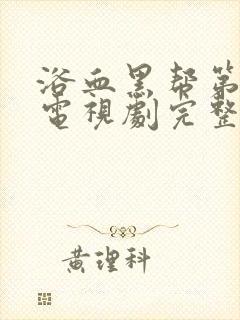 浴血黑帮第
電視劇完整
黃理科